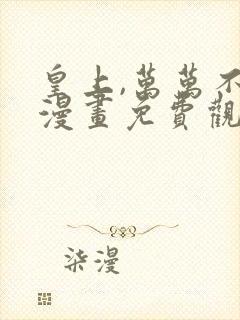 皇上,萬萬不
漫畫免費觀
柒漫